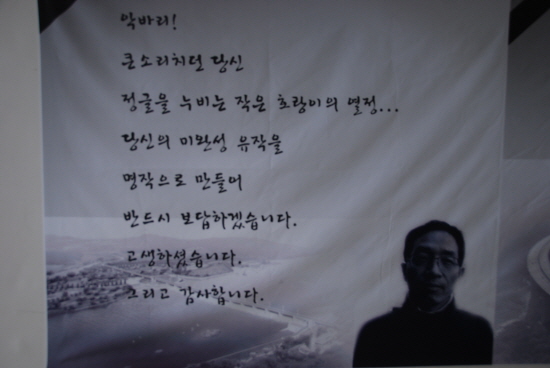 악바리!
큰소리치던 당신
정글을 누비는 작은 호랑이의 열정...
당신의 미완성 유작을
명작으로 만들어
반드시 보답하겠습니다.
고생하셨습니다.
그리고 감사합니다.